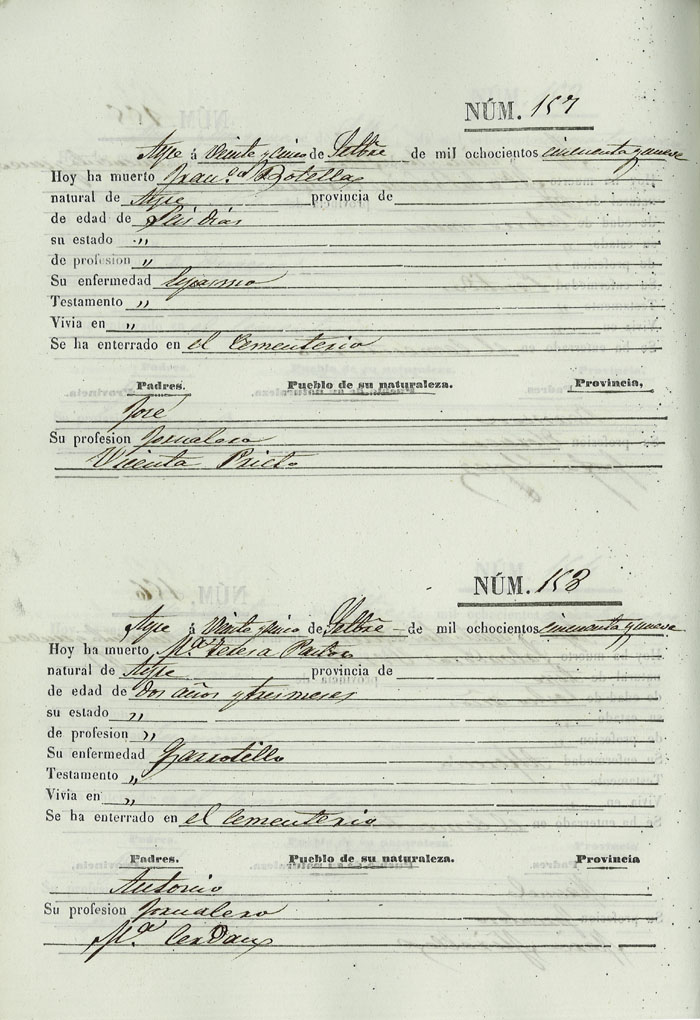 NÚM. 157
Aspe á veinte y cinco de Setbre de mil ochocientos cincuenta y nueve
Hoy ha muerto Fran.ca Botella
natural de Aspe provincia de
de edad de seis dias
su estado „
de profesion „
Su enfermedad Espasmo
Testamento „
Vivia en „
Se ha enterrado en el Cementerio
Padres. Pueblo de su naturaleza. Provincia,
José
Su profesion Jornalero
Vicenta Prieto
NÚM. 158
Aspe á veinte y cinco de Setbre de mil ochocientos cincuenta y nueve
Hoy ha muerto M.a Teresa Pastor
natural de Aspe provincia de
de edad de dos años y tres meses
su estado „
de profesion „
Su enfermedad Garrotillo
Testamento „
Vivia en „
Se ha enterrado en el Cementerio
Padres. Pueblo de su naturaleza. Provincia
Antonio
Su profesion Jornalero
M.a Cerdan